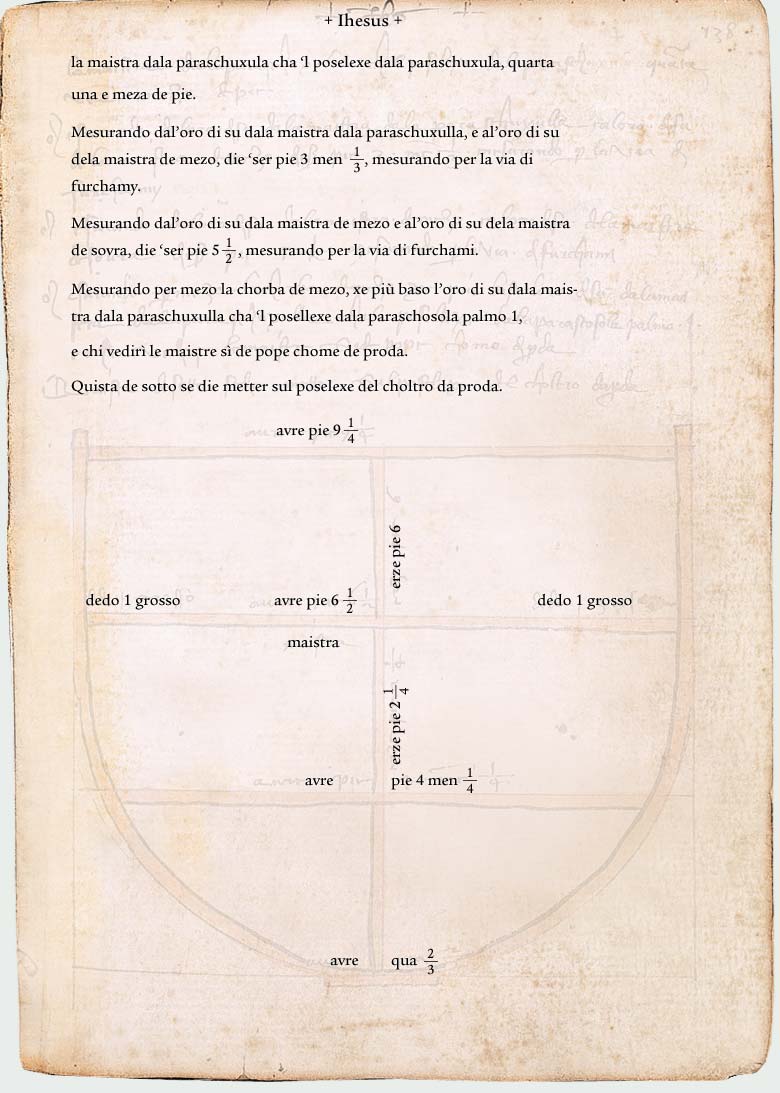 + Ihesus +
la maistra dala paraschuxula cha ‘l poselexe dala paraschuxula, quarta
una e meza de pie.
Mesurando dal’oro di su dala maistra dala paraschuxulla, e al’oro di su
dela maistra de mezo, die ‘ser pie 3 men 1/3, mesurando per la via di
furchamy.
Mesurando dal’oro di su dala maistra de mezo e al’oro di su dela maistra
de sovra, die ‘ser pie 5 1/2, mesurando per la via di furchami.
Mesurando per mezo la chorba de mezo, xe più baso l’oro di su dala mais-
tra dala paraschuxulla cha ‘l posellexe dala paraschosola palmo 1,
e chi vedirì le maistre sì de pope chome de proda.
Quista de sotto se die metter sul poselexe del choltro da proda.
avre pie 9 1/4
erze pie 6
dedo 1 grosso
avre pie 6 1/2
dedo 1 grosso
maistra
erze pie 2 1/4
avre pie 4 men 1/4
avre qua 2/3